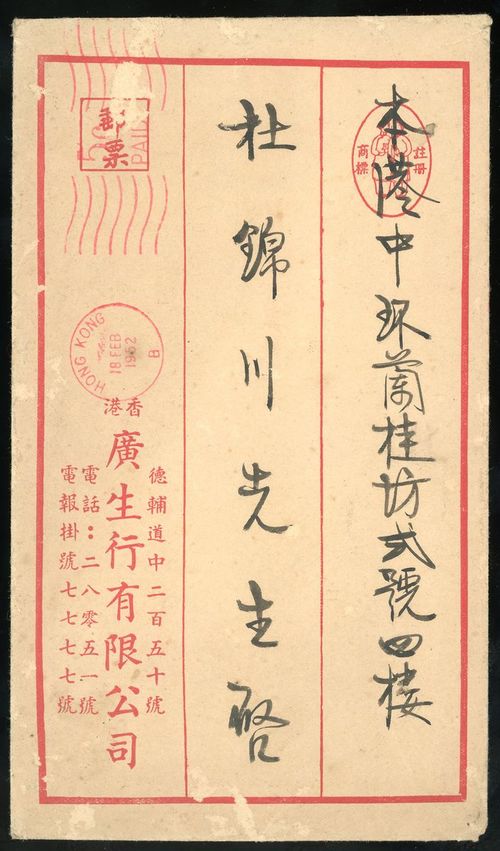 本港中環蘭桂坊式號四楼
註册
商標
杜錦川先生啓
郵票
PAID
HONG KONG
18 FEB
1952
B
香港
德輔道中二百五十號
廣生行有限公司
電話：二八零五一號
電報掛號七七七七號